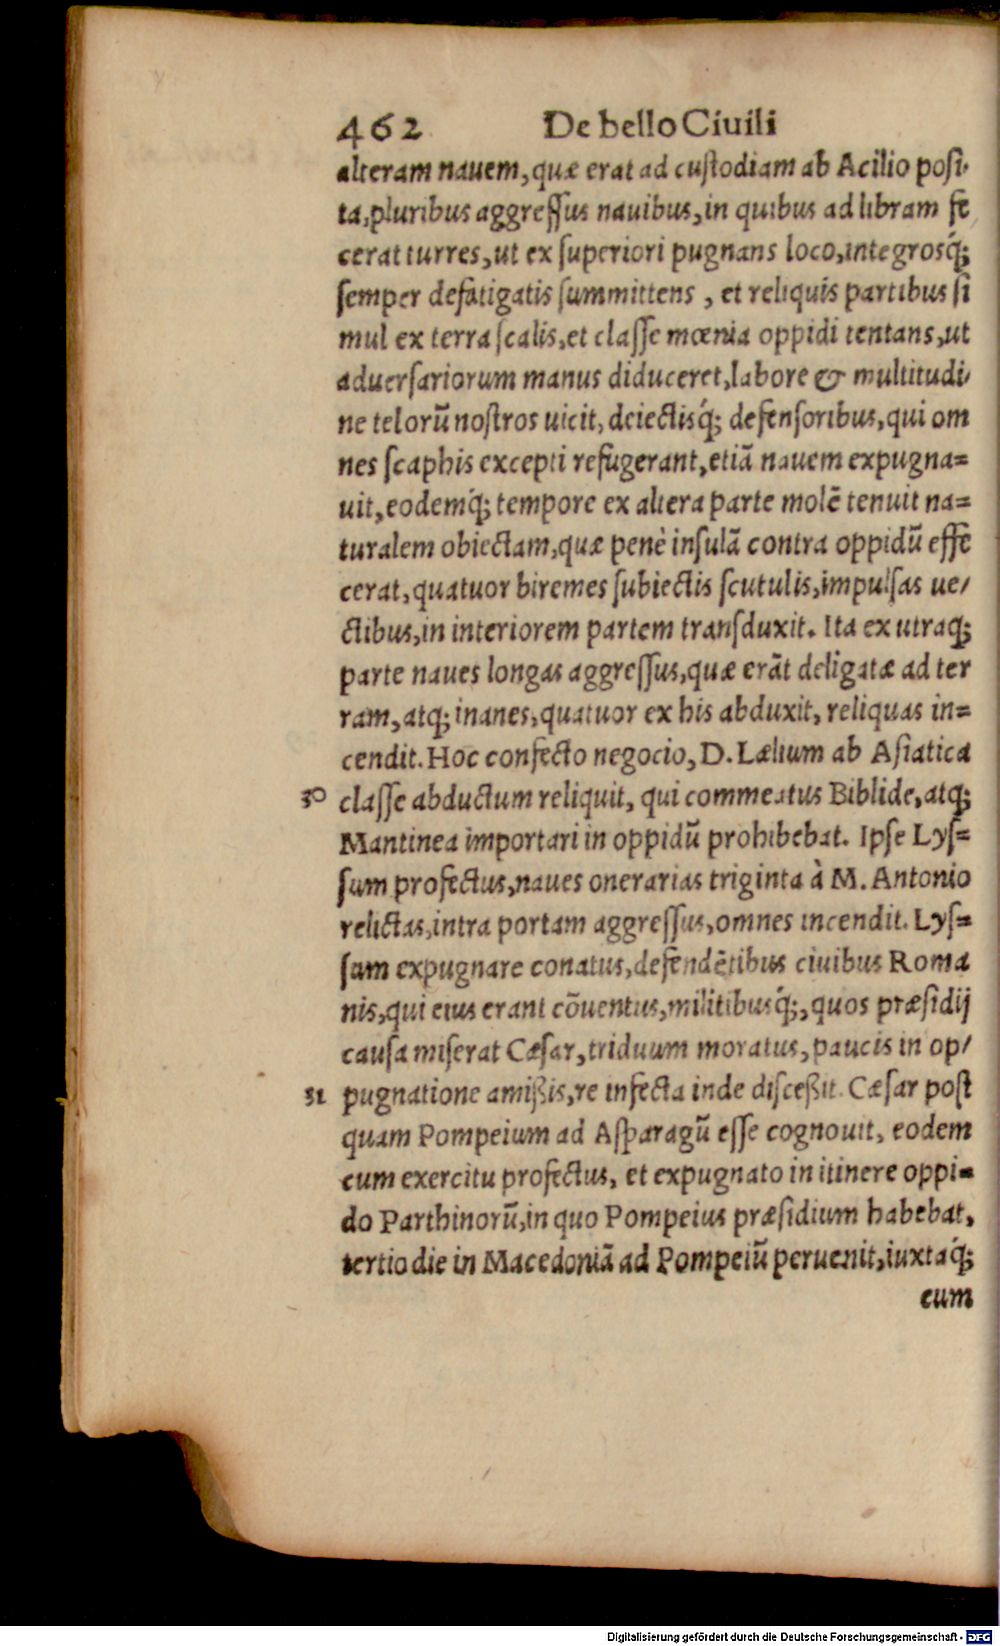 462 De bello Ciuili
alteram nauem, quæ erat ad cuſtodiam ab Acilio poſi-
ta, pluribus aggreſſus nauibus, in quibus ad libram fe
cerat turres, ut ex ſuperiori pugnans loco, integrosq́;
ſemper defatigatis ſummittens, et reliquis partibus ſi
mul ex terra ſcalis, et claſſe mœnia oppidi tentans, ut
aduerſariorum manus diduceret, labore & multitudi-
ne telorū noſtros uicit, deiectisq́; defenſoribus, qui om
nes ſcaphis excepti refugerant, etiā nauem expugna=
uit, eodemq́; tempore ex altera parte molē tenuit na=
turalem obiectam, quæ penè inſulā contra oppidū effe
cerat, quatuor biremes ſubiectis ſcutulis, impulſas ue/
ctibus, in interiorem partem tranſduxit. Ita ex utraq;
parte naues longas aggreſſus, quæ erāt deligatæ ad ter
ram, atq; inanes, quatuor ex his abduxit, reliquas in=
cendit. Hoc confecto negocio, D. Lælium ab Aſiatica
30 claſſe abductum reliquit, qui commeatus Biblide, atq;
Mantinea importari in oppidū prohibebat. Ipſe Lyſ=
ſum profectus, naues onerarias triginta à M. Antonio
relictas, intra portam aggreſſus, omnes incendit. Lyſ=
ſum expugnare conatus, defendētibus ciuibus Roma
nis, qui eius erant cōuentus, militibusq́;, quos præſidij
cauſa miſerat Cæſar, triduum moratus, paucis in op/
31 pugnatione amißis, re infecta inde diſceßit. Cæſar poſt
quam Pompeium ad Aſparagū eſſe cognouit, eodem
cum exercitu profectus, et expugnato in itinere oppi=
do Parthinorū, in quo Pompeius præſidium habebat,
tertio die in Macedoniā ad Pompeiū peruenit, iuxtaq́;
eum
Digitalisierung gefördert durch die Deutsche Forschungsgemeinschaft - DFG